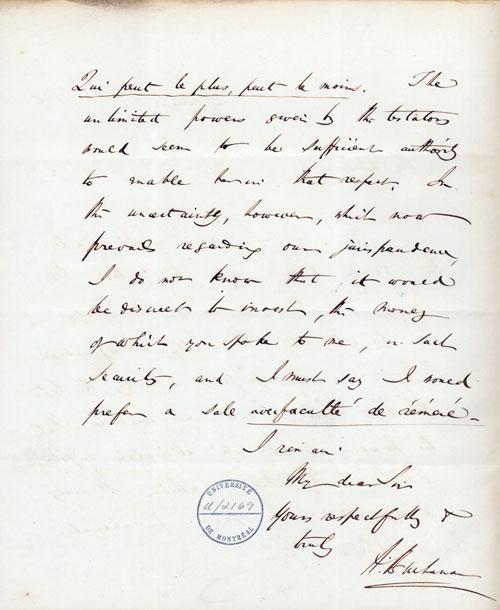 Qui peut le plus, peut le moins. The
unlimited powers given by the testator
would seem to be sufficient authority
to enable her in that respect. In
the uncertainty, however, which now
prevails regarding our jurisprudence,
I do not know that it would
be discreet to invest, the money
of which you spoke to me, in such
security, and I must say I would
prefer a sale avec faculté de réméré -
I remain
My dear Sir
Yours respectfully &
truly
A. Buchanan
UNIVERSITÉ
U/2169
DE MONTRÉAL